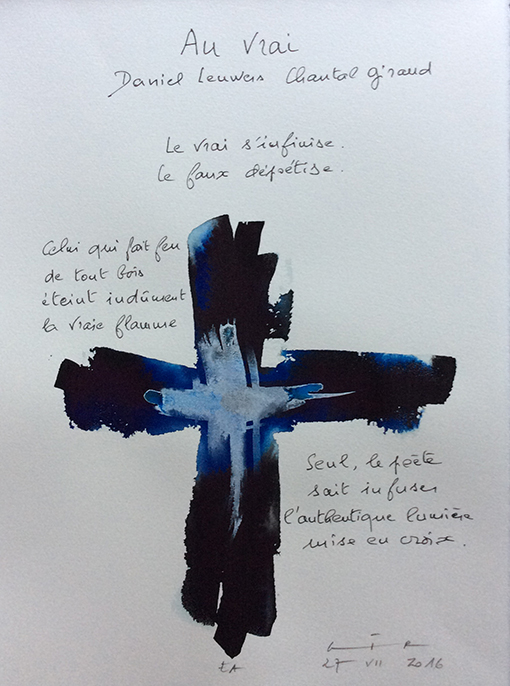 Au vrai
Daniel Leuwers Chantal Giraud
Le vrai s'infinise.
Le faux dépoétise.
Celui qui fait feu
de tout bois
éteint indûment
la vraie flamme
Seul, le poète
sait infuser
l'authentique lumière
mise en croix.
EA
27 VII 2016